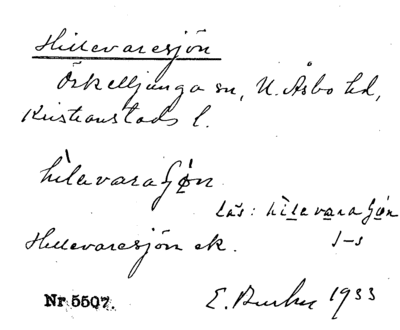 Hillevaresjön
Örkelljunga sn, N. Åsbo hd,
Kristianstads l.
hìlevaraʃø̀n
Läs: hìlevaraʃøn
Hillevaresjön ek. 1-s
Nr 5507. E. 1933